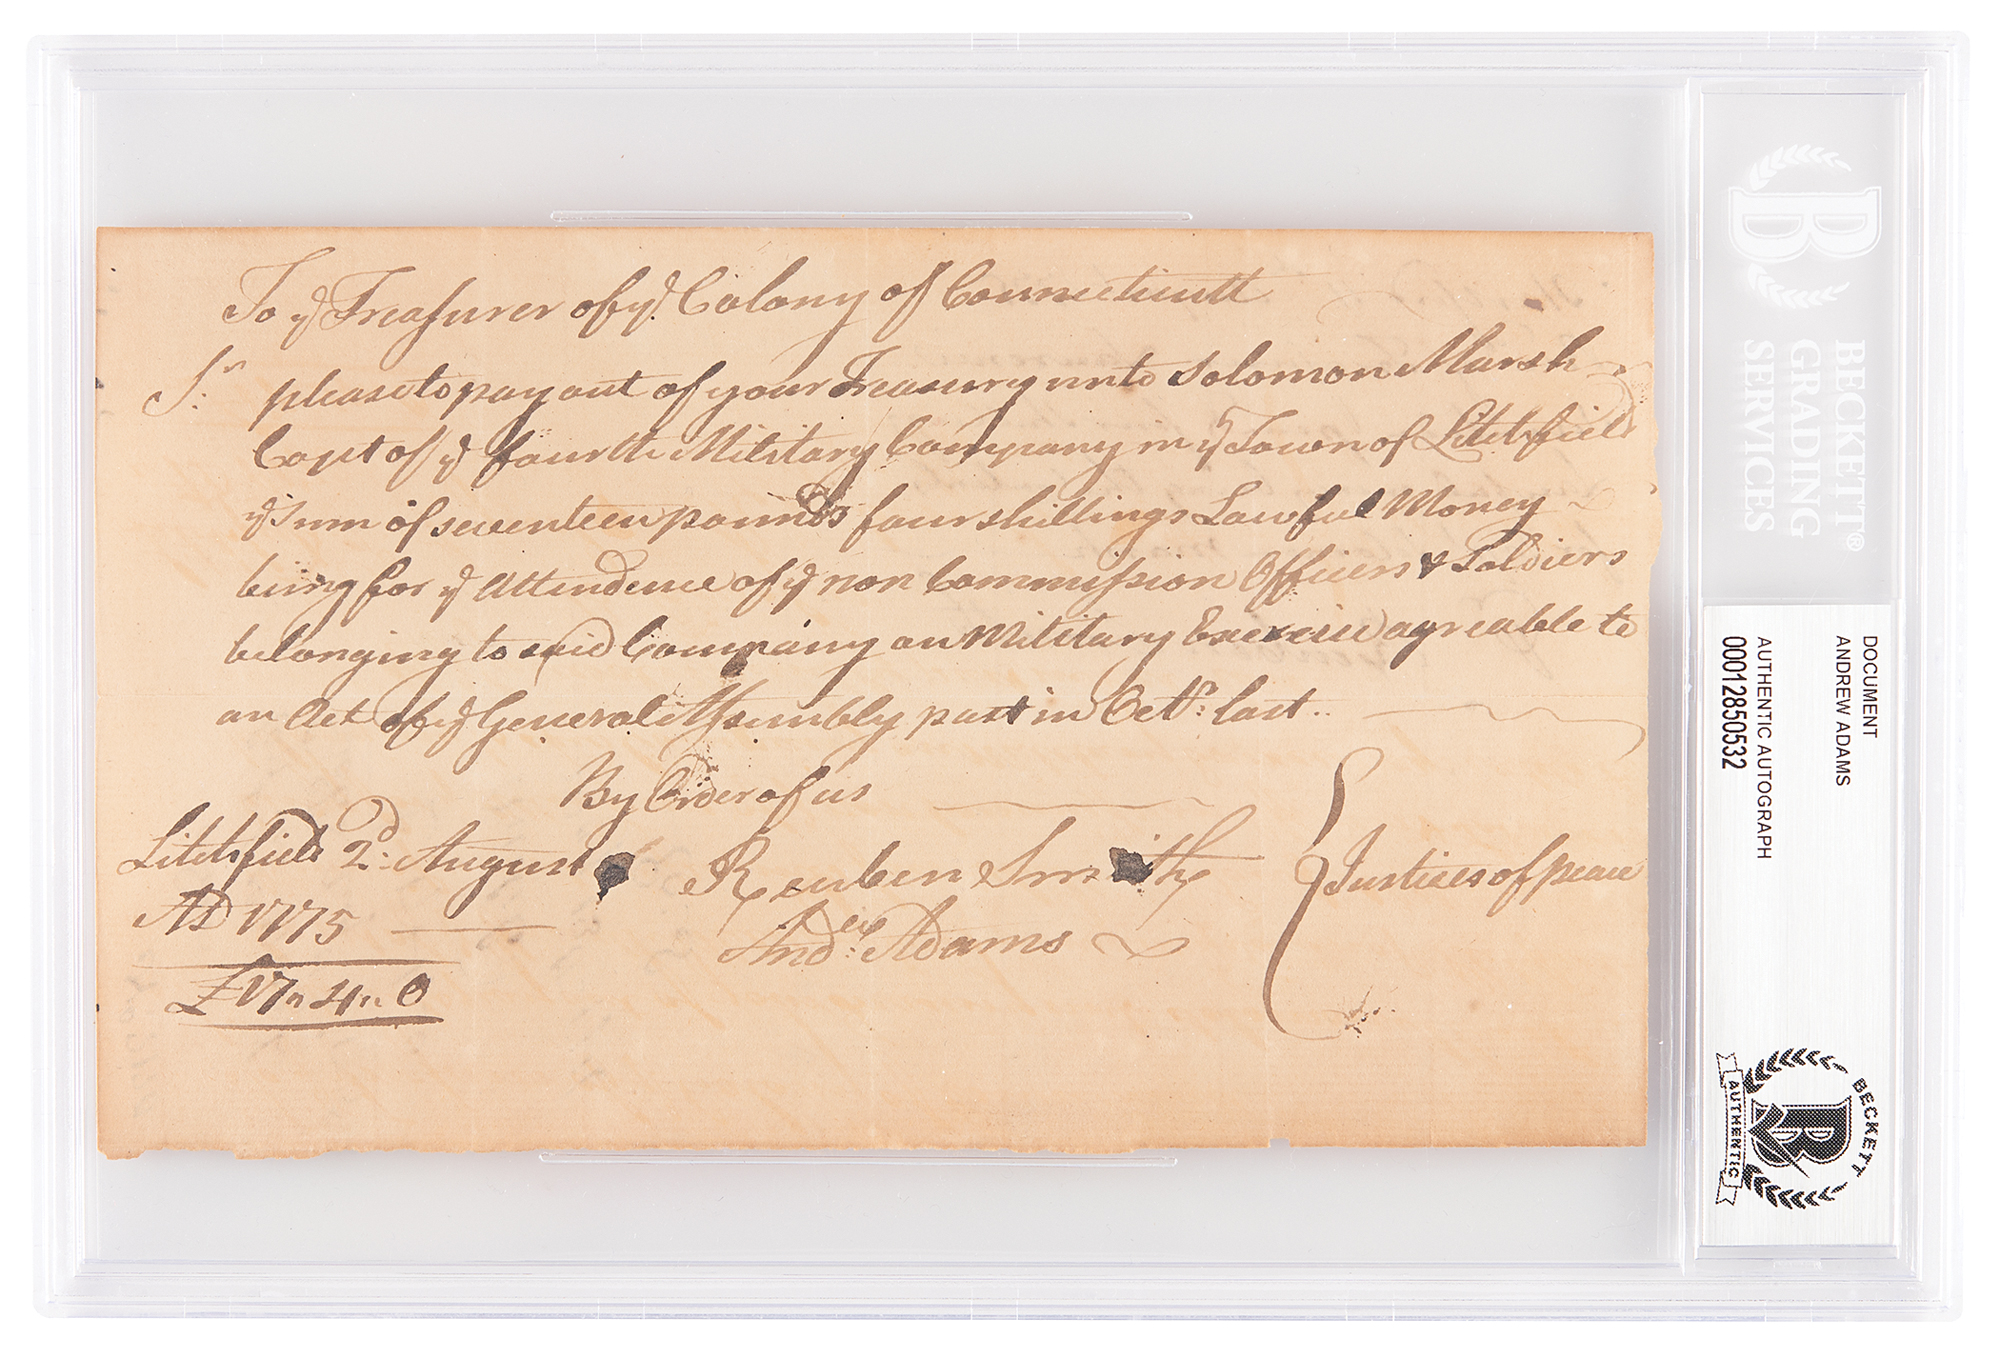 To ye Treasurer of ye Colony of Connecticutt
Sr please to pay out of your Treasury unto Solomon Marsh
Capt of ye fourth Military Company in ye Town of Litchfield
ye Sum of seventeen pounds four shillings Lawful Money
being for ye Attendence of ye non Commission Officers & Soldiers
belonging to said Company on Military Exercise agreable to
an Act of ye General Assembly past in Octr: last..
By Order of us
Litchfield 2d: August
AD 1775
£17〃4〃0
Reuben Smith
Andew: Adams
Justices of peace
BECKETT®
GRADING
SERVICES
DOCUMENT
ANDREW ADAMS
AUTHENTIC AUTOGRAPH
00012850532
BECKETT
AUTHENTIC
B
B